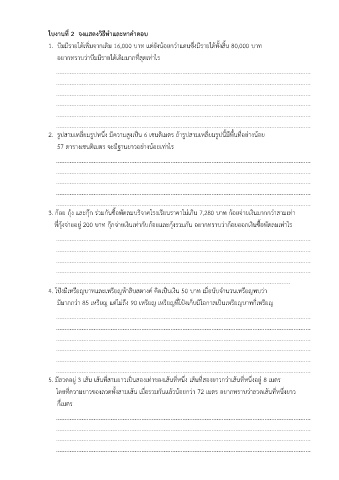 ใบงานที่ 2 จงแสดงวิธีทำและหาคำตอบ
1. บีมมีรายได้เพิ่มจากเดิม 16,000 บาท แต่ยังน้อยกว่าแดนซึ่งมีรายได้ทั้งสิ้น 80,000 บาท
อยากทราบว่าบีมมีรายได้เดิมมากที่สุดเท่าไร
2. รูปสามเหลี่ยมรูปหนึ่ง มีความสูงเป็น 6 เซนติเมตร ถ้ารูปสามเหลี่ยมรูปนี้มีพื้นที่อย่างน้อย
57 ตารางเซนติเมตร จะมีฐานยาวอย่างน้อยเท่าไร
3. ก้อย กุ้ง และกุ๊ก ร่วมกันซื้อพัดลมบริจาคโรงเรียนราคาไม่เกิน 7,280 บาท ก้อยจ่ายเงินมากกว่าสามเท่า
ที่กุ้งจ่ายอยู่ 200 บาท กุ๊กจ่ายเงินเท่ากับก้อยและกุ้งรวมกัน อยากทราบว่าก้อยออกเงินซื้อพัดลมเท่าไร
4. โป้งมีเหรียญบาทและเหรียญห้าสิบสตางค์ คิดเป็นเงิน 50 บาท เมื่อนับจำนวนเหรียญพบว่า
มีมากกว่า 85 เหรียญ แต่ไม่ถึง 90 เหรียญ เหรียญที่โป้งเก็บมีโอกาสเป็นเหรียญบาทกี่เหรียญ
5. มีลวดอยู่ 3 เส้น เส้นที่สามยาวเป็นสองเท่าของเส้นที่หนึ่ง เส้นที่สองยาวกว่าเส้นที่หนึ่งอยู่ 8 เมตร
โดยที่ความยาวของลวดทั้งสามเส้น เมื่อรวมกันแล้วน้อยกว่า 72 เมตร อยากทราบว่าลวดเส้นที่หนึ่งยาว
กี่เมตร